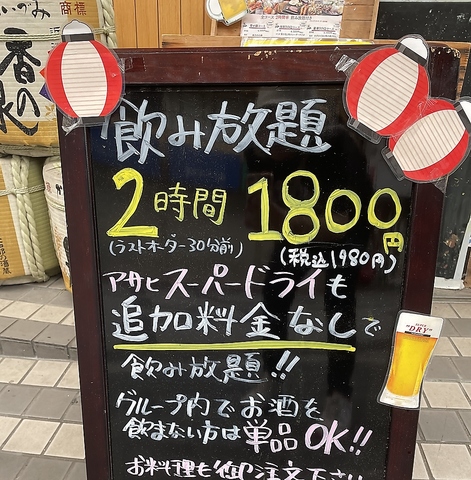 飲み放題
2時間 1800円
(ラストオーダー30分前)
(税込1980円)
アサヒスーパードライも
追加料金なしで
飲み放題!!
グループ内でお酒を
飲まない方は単品OK!!
お料理も御注文下さい
DRY